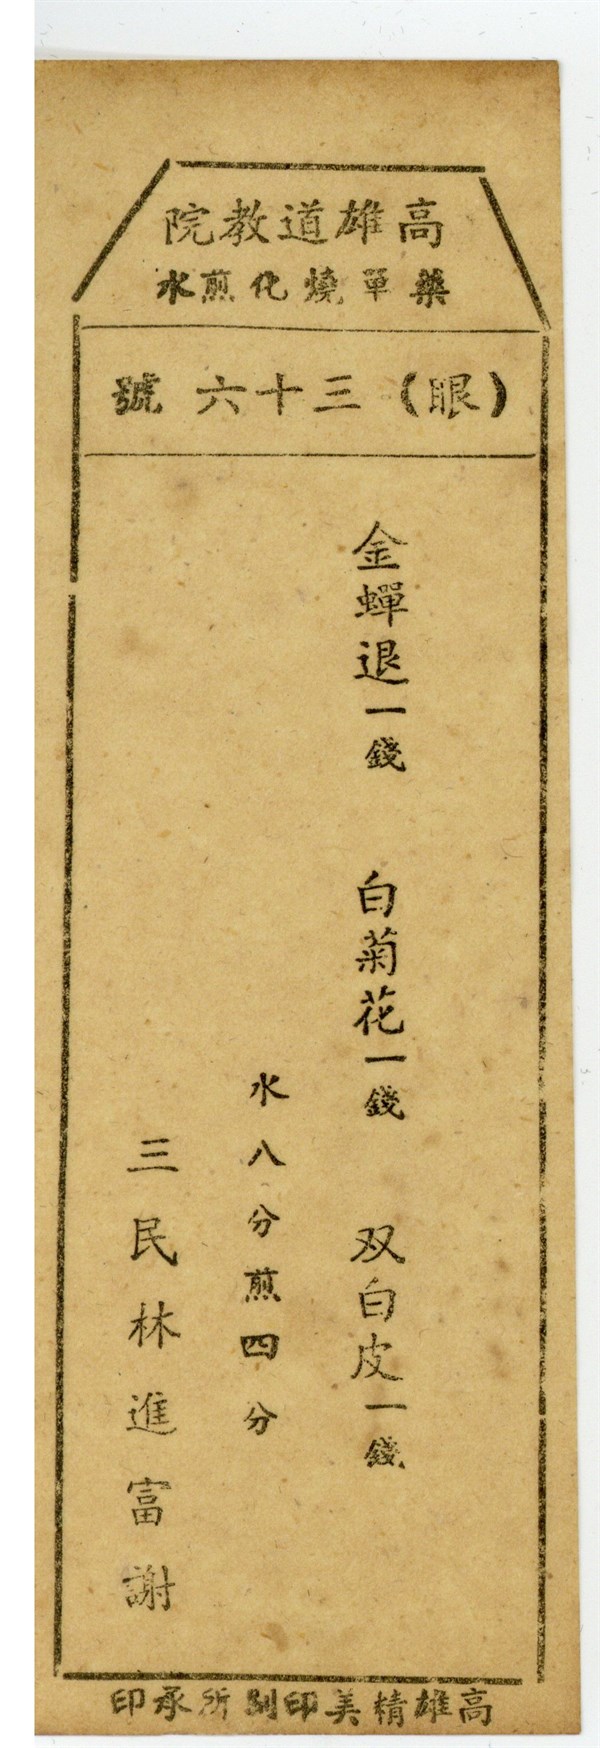 高雄道教院
藥單燒化煎水
(眼)三十六號
金蟬退一錢 白菊花一錢 双白皮一錢
水八分煎四分
三民林進富謝
高雄精美印刷所承印